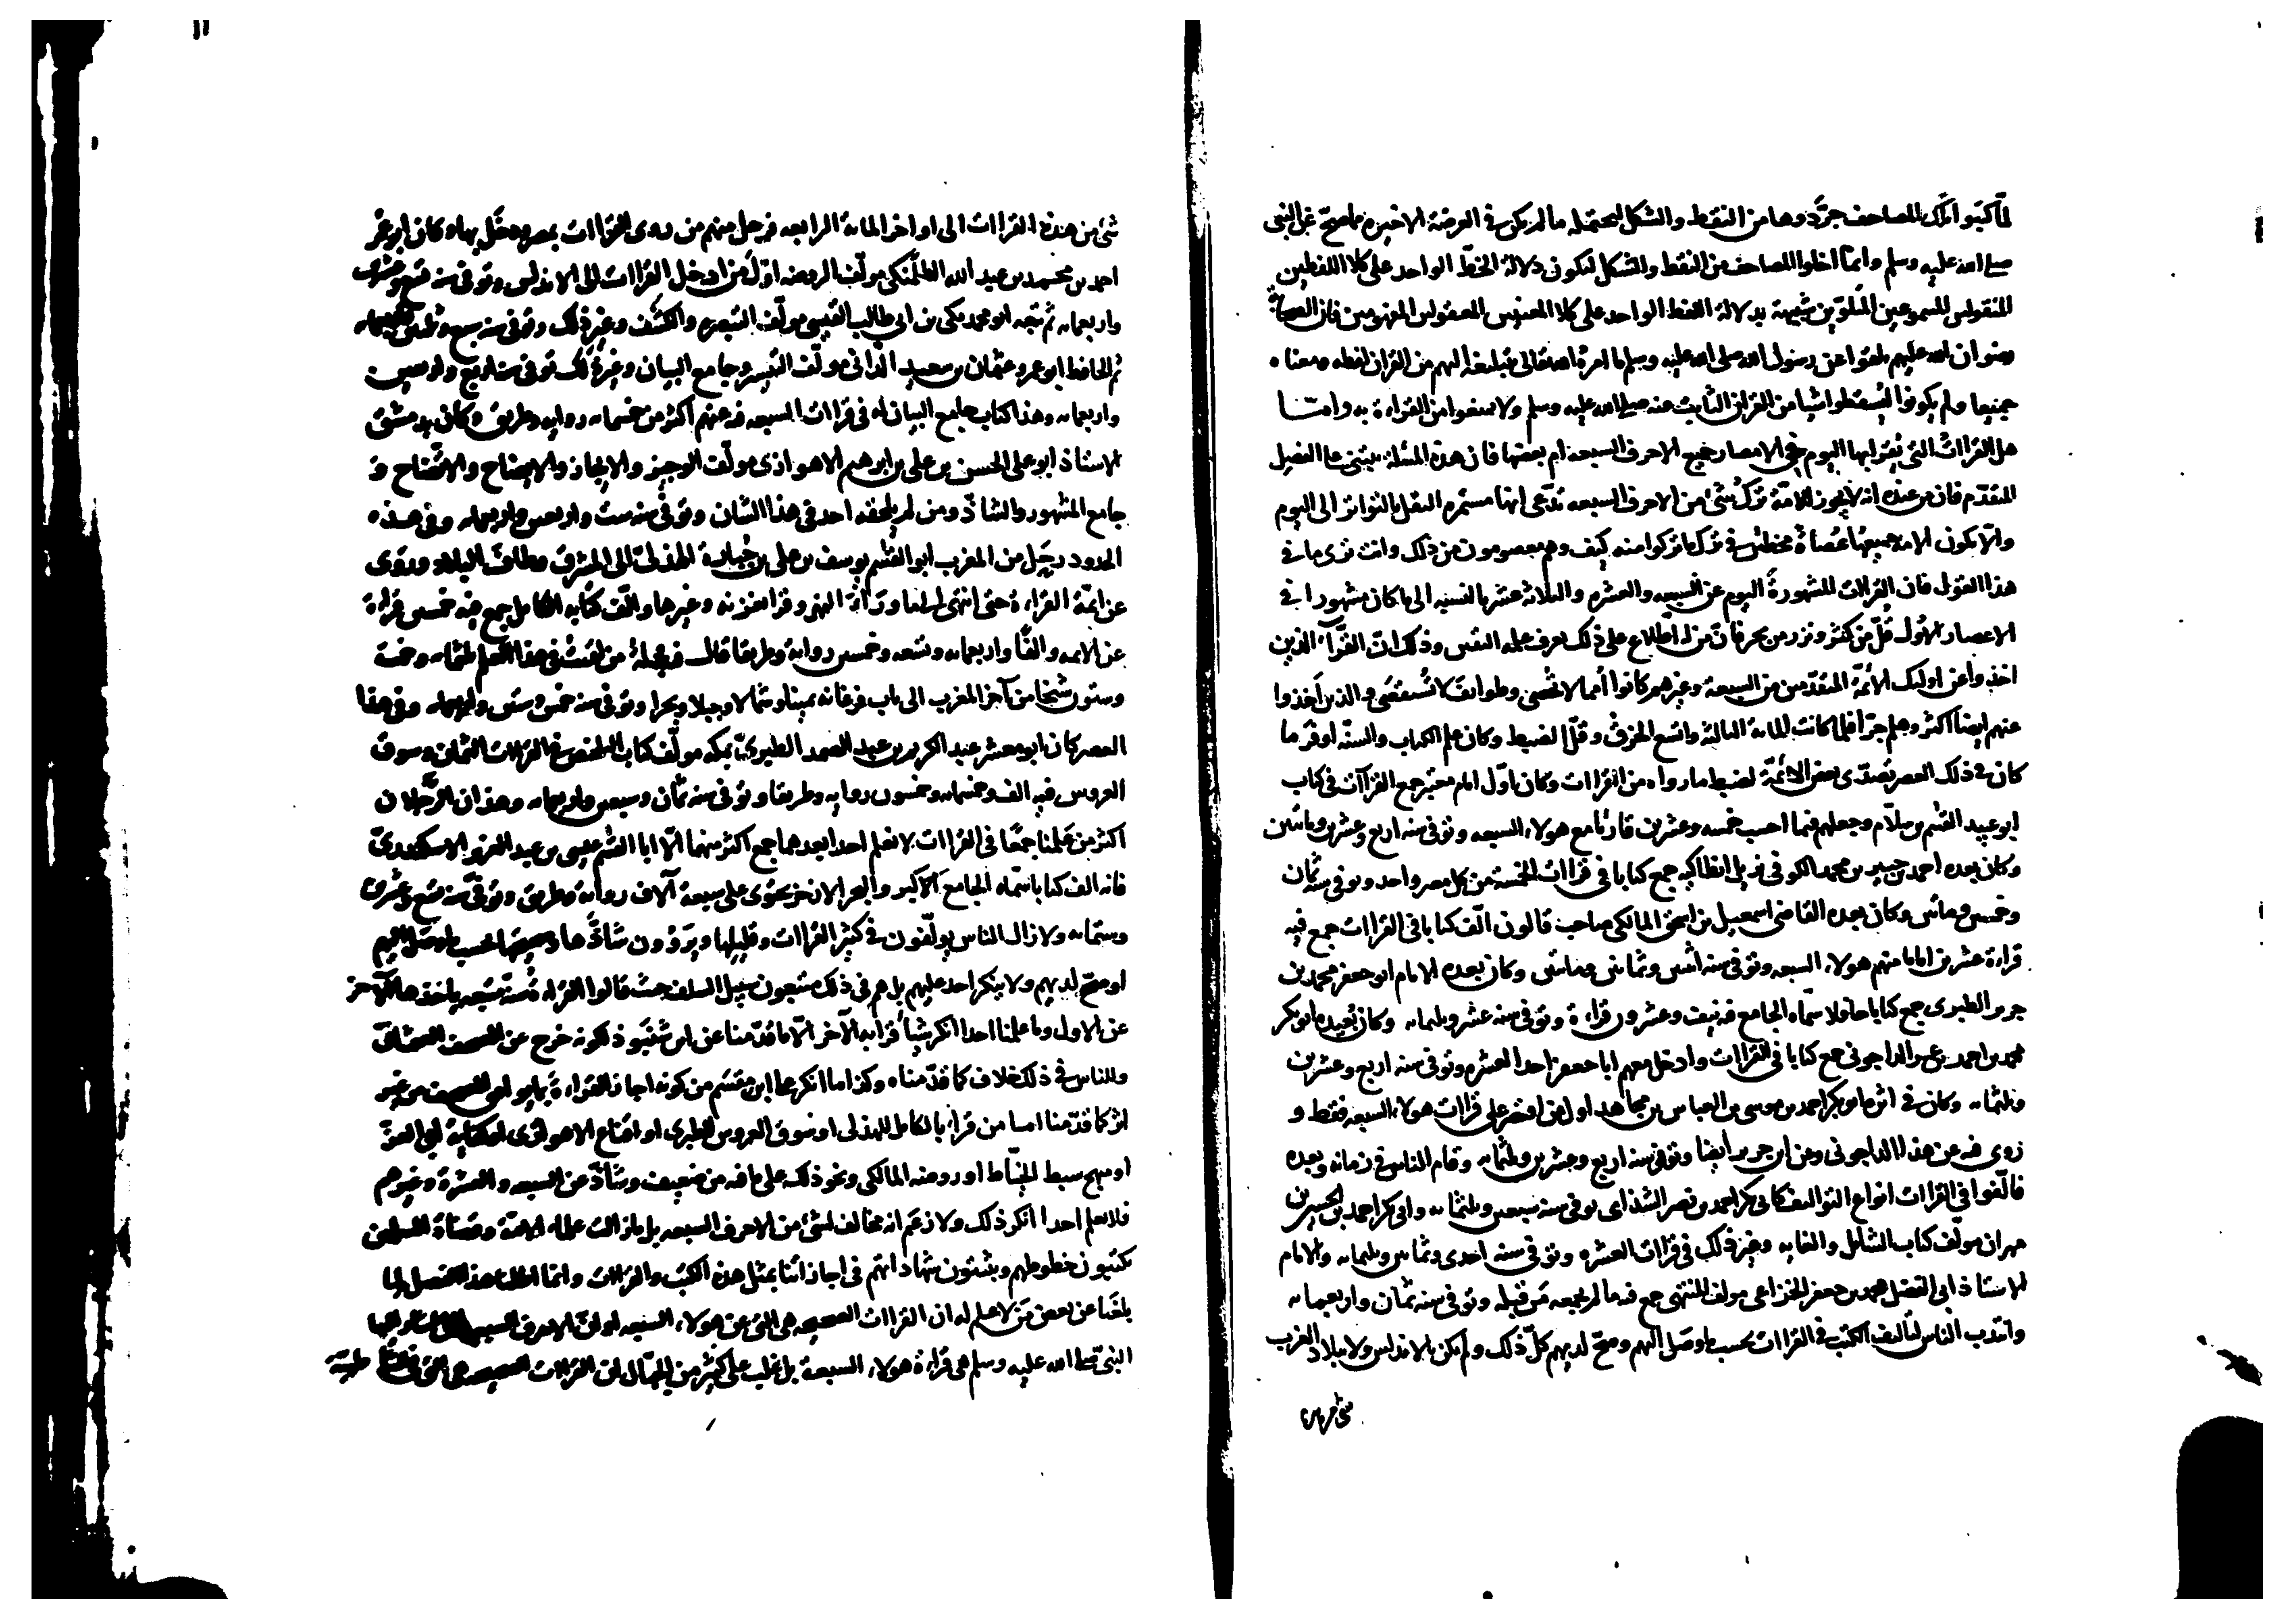 لما كتبوا تلك المصاحف جرّدوها من النقط والشكل ليحتمله ما لم يكن في العرضة الاخيره مما صح عن النبي
صلى الله عليه وسلم وانما اخلوا المصاحف من النقط والشكل لتكون دلالة الخط الواحد على كلا اللفظين
المنقولين المسموعين المتلوّين شبيهة بدلالة اللفظ الواحد على كلا المعنيين المعقولين المفهومين فان الصحابة
رضوان الله عليهم تلقوا عن رسول الله صلى الله عليه وسلم ما امره الله تعالى بتبليغه اليهم من القران لفظه ومعناه
جميعا ولم يكونوا ليسقطوا شيا من القران الثابت عنه صلى الله عليه وسلم ولا يمنعوا من القراءة به وامّا
هل القراات التي يقرا بها اليوم في الامصار جميع الاحرف السبعه ام بعضها فان هذه المسئلة تبتني على الفصل
المتقدّم فان من عنده انه لا يجوز للامّة ترك شئ من الاحرف السبعه يدّعى انها مستمره النقل بالتواتر الى اليوم
والّا تكون الامه جميعها عُصاة مخطئين في ترك ما تركوا منه كيف وهم معصومون من ذلك وانت ترى ما في
هذا القول فان القراات المشهورةَ اليوم عن السبعه والعشره والثلاثة عشر بالنسبه الى ما كان مشهورا في
الاعصار الاُول قُلّ من كثر ونزر من بحر فانّ من له اطّلاع على ذلك يعرف علمه اليقين وذلك انّ القرّاء الذين
اخذوا عن اوليك الائمّة المتقدّمين من السبعة وغيرهم كانوا أمما لا تُحصى وطوايف لا تُستقصَى والذين اَخذوا
عنهم ايضا اكثر وهلم جرّا فلما كانت المائة الثالثة واتسع الخرق وقلّ الضبط وكان علم الكتاب والسنّه اوفر ما
كان في ذلك العصر تصدّى بعض الائمّة لضبط ما رواه من القراات وكان اوّل امام معتبر جمع القراآت في كتاب
ابو عبيد القسم بن سلّام وجعلهم فيما احسب خمسه وعشرين قاريًا مع هولاء السبعه وتوفى سنه اربع وعشرين ومائتين
وكان بعده احمد بن جبير بن محمد الكوفى نزيل انطاكيه جمع كتابا في قراات الخمسة من كل مصر واحد وتوفى سنه ثمان
وخمسين ومائتين وكان بعده القاضى اسمعيل بن اسحق المالكى صاحب قالون الّف كتابا في القراات جمع فيه
قراءة عشرين اماما منهم هولاء السبعه وتوفى سنه اثنتين وثمانين ومائتين وكان بعده الامام ابو جعفر محمد بن
جرير الطبرى جمع كتابا حافلا سمّاه الجامع فيه نيف وعشرون قراءة وتوفى سنه عشر وثلثمايه وكان بُعيده ابو بكر
محمد بن احمد بن عمر الداجونى جمع كتابا في القراات وادخل معهم ابا جعفر احد العشره وتوفى سنه اربع وعشرين
وثلثمايه وكان في اثره ابو بكر احمد بن موسى بن العباس بن مجاهد اول من اقتصر على قراات هولاء السبعه فقط و
روى فيه عن هذا الداجونى وعن ابن جرير ايضا وتوفى سنه اربع وعشرين وثلثمايه وقام الناس في زمانه وبعده
فالّفوا في القراات انواع التواليف كابى بكر احمد بن نصر الشذاى توفى سنه سبعين وثلثمايه وابى بكر احمد بن الحسين بن
مهران مولّف كتاب الشامل والغايه وغير ذلك في قراات العشره وتوفى سنه احدى وثمانين وثلثمايه والامام
الاستاذ ابى الفضل محمد بن جعفر الخزاعى مولف المنتهى جمع فيه ما لم يجمعه مَن قبله وتوفى سنه ثمان واربعمايه
وانتدب الناس لتاليف الكتب في القراات بحسب ما وصل اليهم وصحّ لديهم كلّ ذلك ولم يكن بالاندلس ولا ببلاد الغرب
شئ من هذه
شئ من هذه القراات الى اواخر المائة الرابعه فرحل منهم من روى القراات بمصر ودخل بها وكان ابو عمر
احمد بن محمد بن عبد الله الطلمنكى مولّف الروضه اوّل من ادخل القراات الى الاندلس وتوفى سنه تسع وعشرين
واربعمايه ثم تبعه ابو محمد مكى بن ابى طالب القيسى مولّف التبصره والكشف وغير ذلك وتوفى سنه سبع وثلثين واربعمايه
ثم الحافظ ابو عمرو عثمان بن سعيد الدّانى مولّف التيسير وجامع البيان وغير ذلك توفى سنه اربع واربعين
واربعمايه وهذا كتاب جامع البيان له في قراات السبعه فيه عنهم اكثر من خمسمايه روايه وطريق وكان بدمشق
الاستاذ ابو على الحسن بن على بن ابرهيم الاهوازى مولّف الوجيز والايجاز والايضاح والاتّضاح و
جامع المشهور والشاذّ ومن لم يلحقه احد في هذا الشان وتوفى سنه ست واربعين واربعمايه وفى هذه
الحدود رحل من المغرب ابو القسم يوسف بن على بن جُبارة الهذلىّ الى المشرق وطاف البلاد وروى
عن ائمّة القراءة حتى انتهى الى ما وراء النهر وقرا بغزنه وغيرها والّف كتابه الكامل جمع فيه خمسين قراءة
عن الائمه والفًا واربعمايه وتسعه وخمسين روايه وطريقا قال فيه فجملة من لقيت في هذا العلم ثلثمايه وخمسة
وستون شيخا من آخر المغرب الى باب فرغانه يمينا وشمالا وجبلا وبحرا وتوفى سنه خمس وستين واربعمايه وفى هذا
العصر كان ابو معشر عبد الكريم بن عبد الصمد الطبرىّ بمكه مولّف كتاب التلخيص في القراات الثمان وسوق
العروس فيه الف وخمسمايه وخمسون روايه وطريقا وتوفى سنه ثمان وسبعين واربعمايه وهذان الرّجلان
اكثر من عَلِمنا جمعًا في القراات لا نعلم احدا بعدهما جمع اكثر منهما الّا ابا القسم عيسى بن عبد العزيز الاسكندرىّ
فانه الف كتابا سمّاه الجامع الاكبر والبحر الازخر يحتوى على سبعة آلاف روايه وطريق وتوفّى سنه تسع وعشرين
وستمايه ولا زال الناس يولّفون في كثير القراات وقليلها ويروون شاذّها وصحيحها بحسب ما وصل اليهم
او صحّ لديهم ولا ينكر احد عليهم بل هم في ذلك متبعون سبيل السلف حيث قالوا القراءة سُنة متبعه ياخذها الآخر
عن الاول وما علمنا احدا انكر شيأ قرا به الآخر الّا ما قدّمنا عن ابن شنَبوذ لكونه خرج عن المصحف العثمانىّ
وللناس في ذلك خلاف كما قدّمناه وكذا ما انكر على ابن مقسم من كونه اجاز القراءة بما يوافق المصحف من غير
اثر كما قدّمنا امّا من قرا بالكامل للهذلى او سوق العروس للطبرى او اقناع الاهوازى او كفاية ابى العزّ
او مبهج سبط الخيّاط او روضه المالكى ونحو ذلك على ما فيه من ضعيف وشاذّ عن السبعه والعشرة وغيرهم
فلا نعلم احدا انكر ذلك ولا زعم انه مخالف لشئ من الاحرف السبعه بل ما زالت علماء الامّة وقضاة المسلمين
يكتبون خطوطهم ويثبتون شهاداتهم في اجازاتنا بمثل هذه الكتب والقراات وانما اطلنا هذا الفصل لما
بلغَنا عن بعض مَن لا علم له ان القراات الصحيحه هى التى عن هولاء السبعه او انّ الاحرف السبعه التى اشار اليها
النبى صلى الله عليه وسلم هى قراءة هولاء السبعة بل غلب على كثير من الجهّال ان القراات الصحيحه هى التى في الشاطبيّة